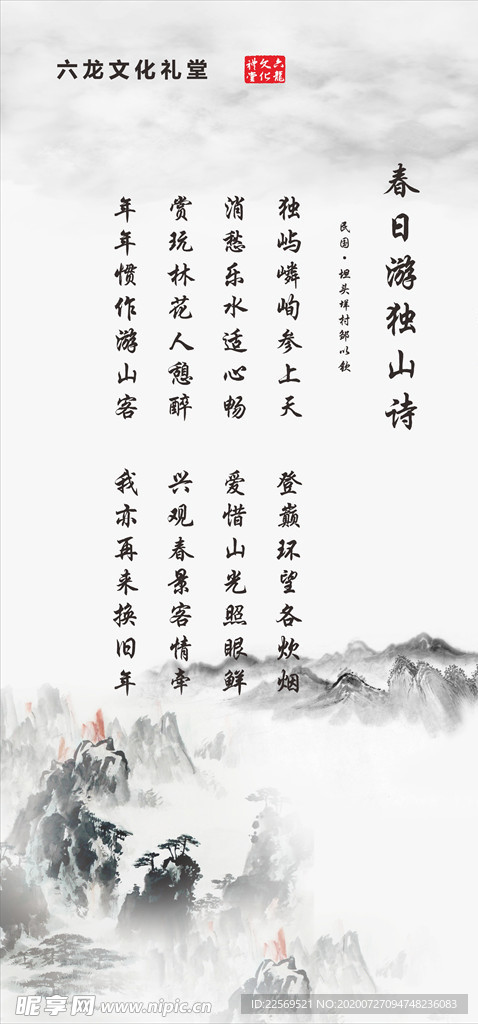 六龙文化礼堂
六龍文化祥堂
春日游独山诗
民国·坦头垟村邹以钦
独屿嶙峋参上天
登巅环望各炊烟
消愁乐水适心畅
爱惜山光照眼鲜
赏玩林花人憩醉
兴观春景客情牵
年年惯作游山客
我亦再来换旧年
昵享网 www.nipic.cn
ID:22569521 NO:20200727094748236083